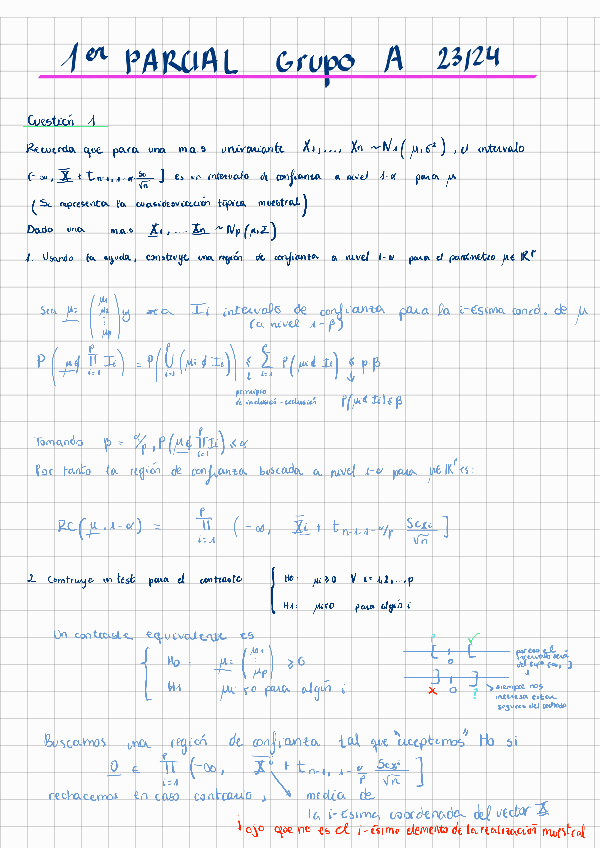 1er PARCIAL Grupo A 23/24
Cuestión 1
Recuerda que para una m.a.s univariante X₁,..., Xn ~ N₁(μ,σ²), el intervalo
(-∞, X̄ + t n-1, 1-α Sc/√n ] es un intervalo de confianza a nivel 1-α para μ
(Sc representa la cuasidesviación típica muestral)
Dado una m.a.s X₁,... Xn ~ Np(μ,Σ)
1. Usando la ayuda, construye una región de confianza a nivel 1-α para el parámetro μ∈ℝᵖ
Sea μ = (μ₁ μ₂ ⋮ μp) y sea Ii intervalo de confianza para la i-ésima coord. de μ
(a nivel 1-β)
P(μ ∉ ∏ᵢ₌₁ᵖ Ii) = P(⋃ᵢ₌₁ᵖ (μi ∉ Ii)) ≤ Σᵢ₌₁ᵖ P(μi ∉ Ii) ≤ pβ
principio
de inclusión-exclusión P(μi ∉ Ii) ≤ β
Tomando β = α/p, P(μ ∉ ∏ᵢ₌₁ᵖ Ii) ≤ α
Por tanto la región de confianza buscada a nivel 1-α para μ∈ℝᵖ es:
RC(μ, 1-α) = ∏ᵢ₌₁ᵖ (-∞, X̄i + t n-1, 1-α/p Scxi/√n ]
2. Construye un test para el contraste { H₀: μi ≥ 0 ∀ i=1,2,...,p
H₁: μi<0 para algún i
Un contraste equivalente es
{ H₀: μ = (μ₁ ⋮ μp) ≥ 0
H₁ μi<0 para algún i
por eso el
intervalo será
del tipo (-∞, ]
siempre nos
interesa estar
seguros del rechazo
Buscamos una región de confianza tal que "aceptemos" H₀ si
0 ∈ ∏ᵢ₌₁ᵖ (-∞, X̄i + t n-1, 1-α/p Scxi/√n ]
rechacemos en caso contrario, media de
la i-ésima coordenada del vector X
! ojo que no es el i-ésimo elemento de la realización muestral